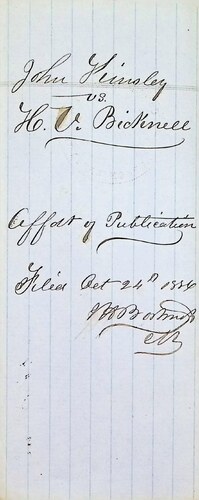 John Kinsley
vs.
H. V. Bicknell
Affdt of Publication
Filed Oct 24th 1856
Clk